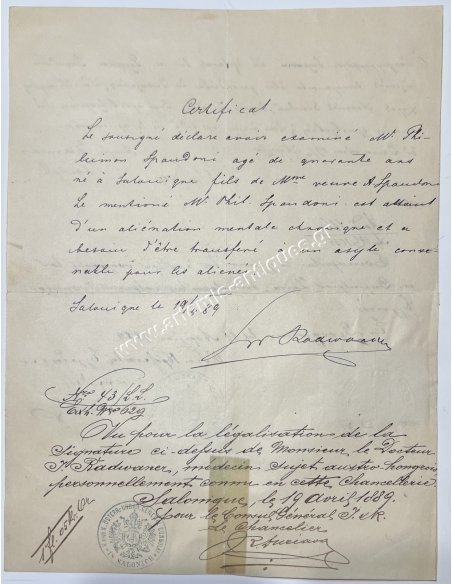 Certificat.
Le sousigné déclare avoir examiné Mr. Phi-
lemon Spandoni agé de quarante ans
né à Salonique fils de Mme veuve A Spandoni
Le mentioné Mr. Phil. Spandoni est atteint
d'un aliénation mentale chronique et a
besoin d'être transferé à un asyle conve-
nable pour les aliénés
Salonique le 19/ 89
Radwaner
Nro 43/L.L.
Exh. Nro 629
Vu pour la légalisation de la
Signature ci-depus de Monsieur le Docteur
Radwaner, médecin sujet austro-hongrois
personnellement connu en cette Chancellerie.
Salonique, le 19 Avril, 1889.
pour le Consul Général, I. & R.
le Chancelier
SALONICH
www.antiqis-antiques.gr